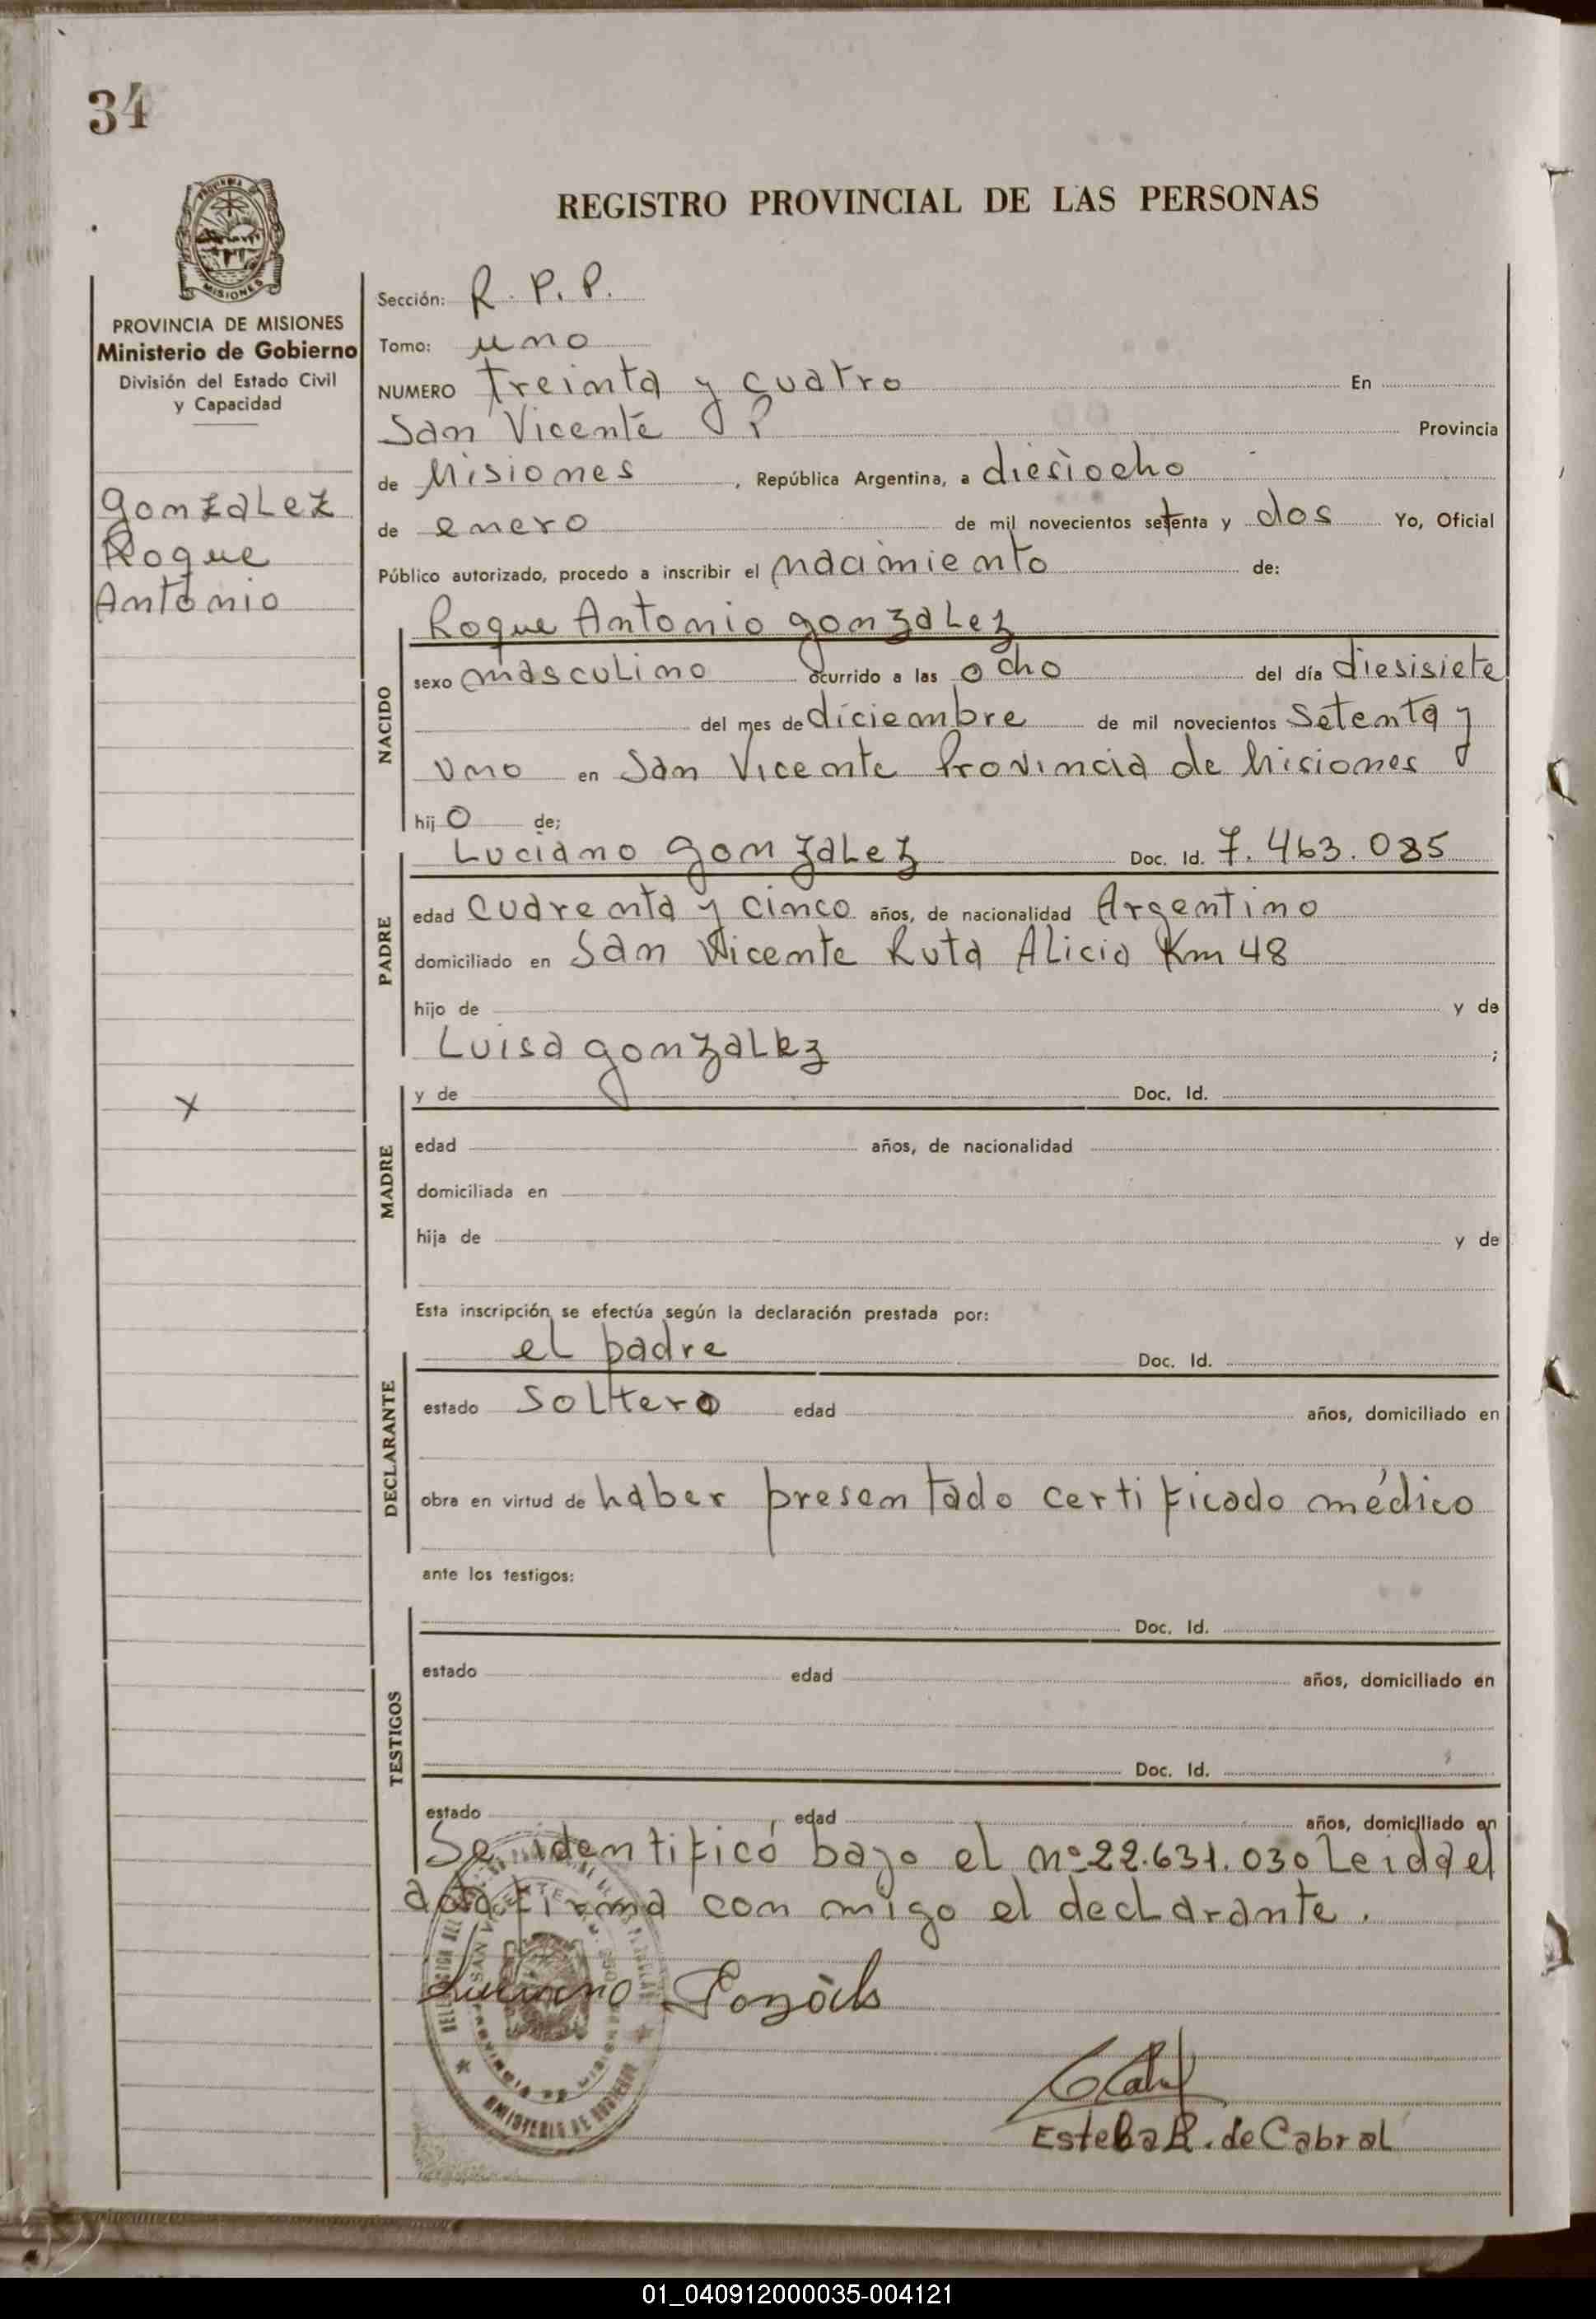 34
REGISTRO PROVINCIAL DE LAS PERSONAS
MISIONES
PROVINCIA DE MISIONES
Ministerio de Gobierno
División del Estado Civil
y Capacidad
Gonzalez
Roque
Antonio
x
Sección: R. P. P.
Tomo: uno
NUMERO treinta y cuatro En
San Vicente P Provincia
de Misiones, República Argentina, a diesiocho
de enero de mil novecientos setenta y dos Yo, Oficial
Público autorizado, procedo a inscribir el nacimiento de:
NACIDO
Roque Antonio gonzalez
sexo masculino ocurrido a las ocho del día diesisiete
del mes de diciembre de mil novecientos setenta y
uno en San Vicente Provincia de Misiones
hij o de;
PADRE
Luciano gonzalez Doc. Id. 7.463.085
edad cuarenta y cinco años, de nacionalidad Argentino
domiciliado en San Vicente Ruta Alicia Km 48
hijo de y de
Luisa gonzalez ;
MADRE
y de Doc. Id.
edad años, de nacionalidad
domiciliada en
hija de y de
Esta inscripción se efectúa según la declaración prestada por:
DECLARANTE
el padre Doc. Id.
estado soltero edad años, domiciliado en
obra en virtud de haber presentado certificado médico
ante los testigos:
TESTIGOS
Doc. Id.
estado edad años, domiciliado en
Doc. Id.
estado edad años, domiciliado en
Se identificó bajo el nº 22.631.030 Leida el
acta firma con migo el declarante.
Luciano
MINISTERIO DE GOBIERNO
Estela R. de Cabral
01_040912000035-004121